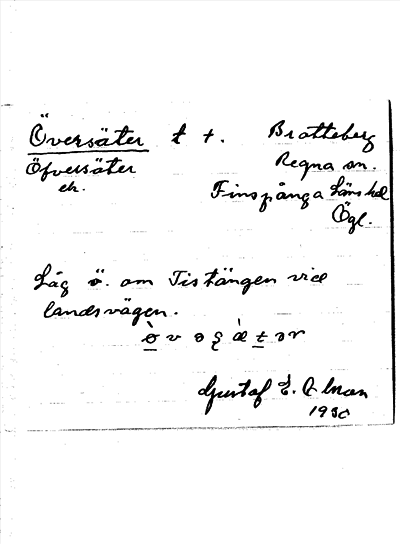 Översäter t t. Bratteberg
Öfversäter Regna sn.
ek. Finspånga Läns hd
Ögl.
Låg ö. om Tistängen vid
landsvägen.
Gustaf E.
1930